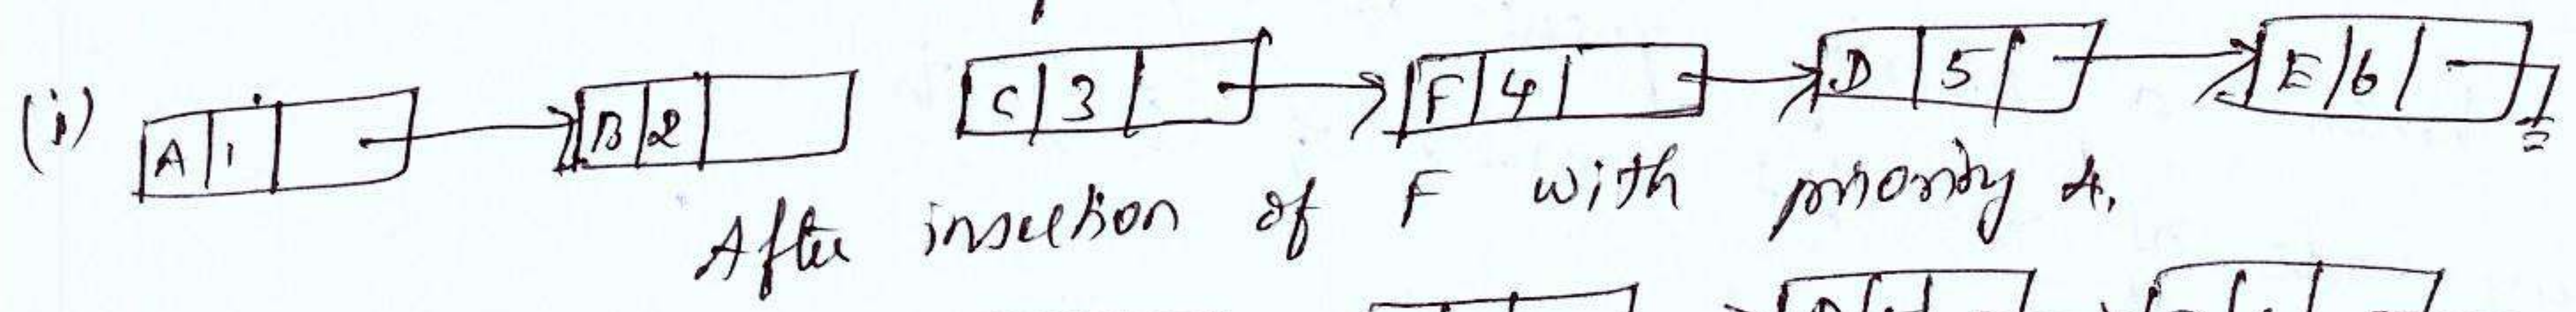 (i) A 1 B 2 C 3 F 4 D 5 E 6
After insertion of F with priority 4.